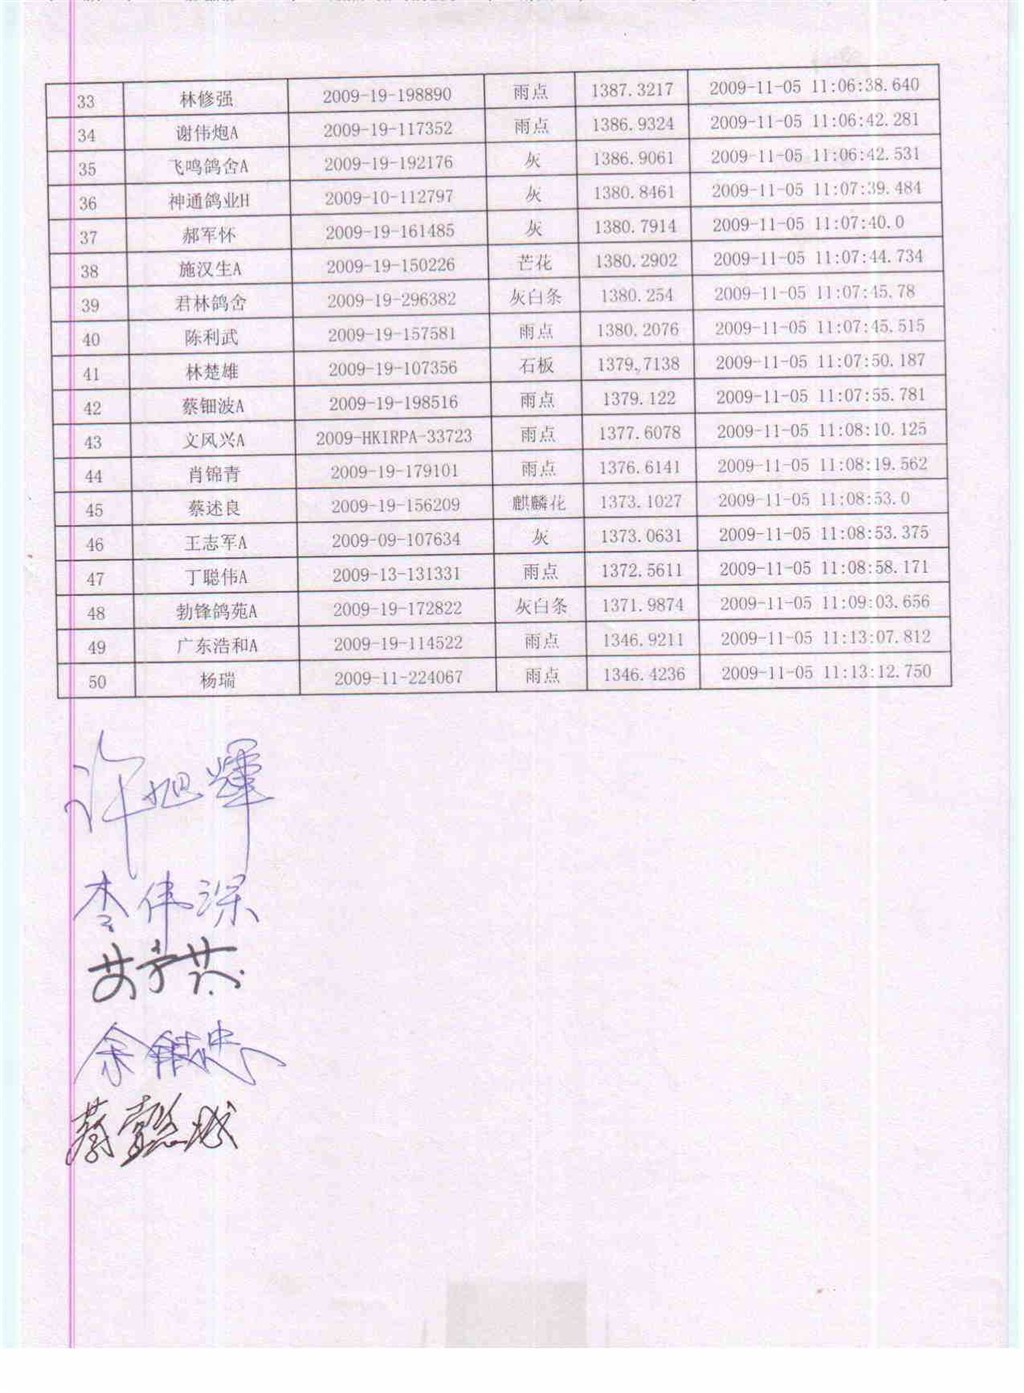 33 林修强 2009-19-198890 雨点 1387.3217 2009-11-05 11:06:38.640
34 谢伟炮A 2009-19-117352 雨点 1386.9324 2009-11-05 11:06:42.281
35 飞鸣鸽舍A 2009-19-192176 灰 1386.9061 2009-11-05 11:06:42.531
36 神通鸽业H 2009-10-112797 灰 1380.8461 2009-11-05 11:07:39.484
37 郝军怀 2009-19-161485 灰 1380.7914 2009-11-05 11:07:40.0
38 施汉生A 2009-19-150226 芒花 1380.2902 2009-11-05 11:07:44.734
39 君林鸽舍 2009-19-296382 灰白条 1380.254 2009-11-05 11:07:45.78
40 陈利武 2009-19-157581 雨点 1380.2076 2009-11-05 11:07:45.515
41 林楚雄 2009-19-107356 石板 1379.7138 2009-11-05 11:07:50.187
42 蔡钿波A 2009-19-198516 雨点 1379.122 2009-11-05 11:07:55.781
43 文风兴A 2009-HKIRPA-33723 雨点 1377.6078 2009-11-05 11:08:10.125
44 肖锦青 2009-19-179101 雨点 1376.6141 2009-11-05 11:08:19.562
45 蔡述良 2009-19-156209 麒麟花 1373.1027 2009-11-05 11:08:53.0
46 王志军A 2009-09-107634 灰 1373.0631 2009-11-05 11:08:53.375
47 丁聪伟A 2009-13-131331 雨点 1372.5611 2009-11-05 11:08:58.171
48 勃锋鸽苑A 2009-19-172822 灰白条 1371.9874 2009-11-05 11:09:03.656
49 广东浩和A 2009-19-114522 雨点 1346.9211 2009-11-05 11:13:07.812
50 杨瑞 2009-11-224067 雨点 1346.4236 2009-11-05 11:13:12.750
许旭輝
李伟深